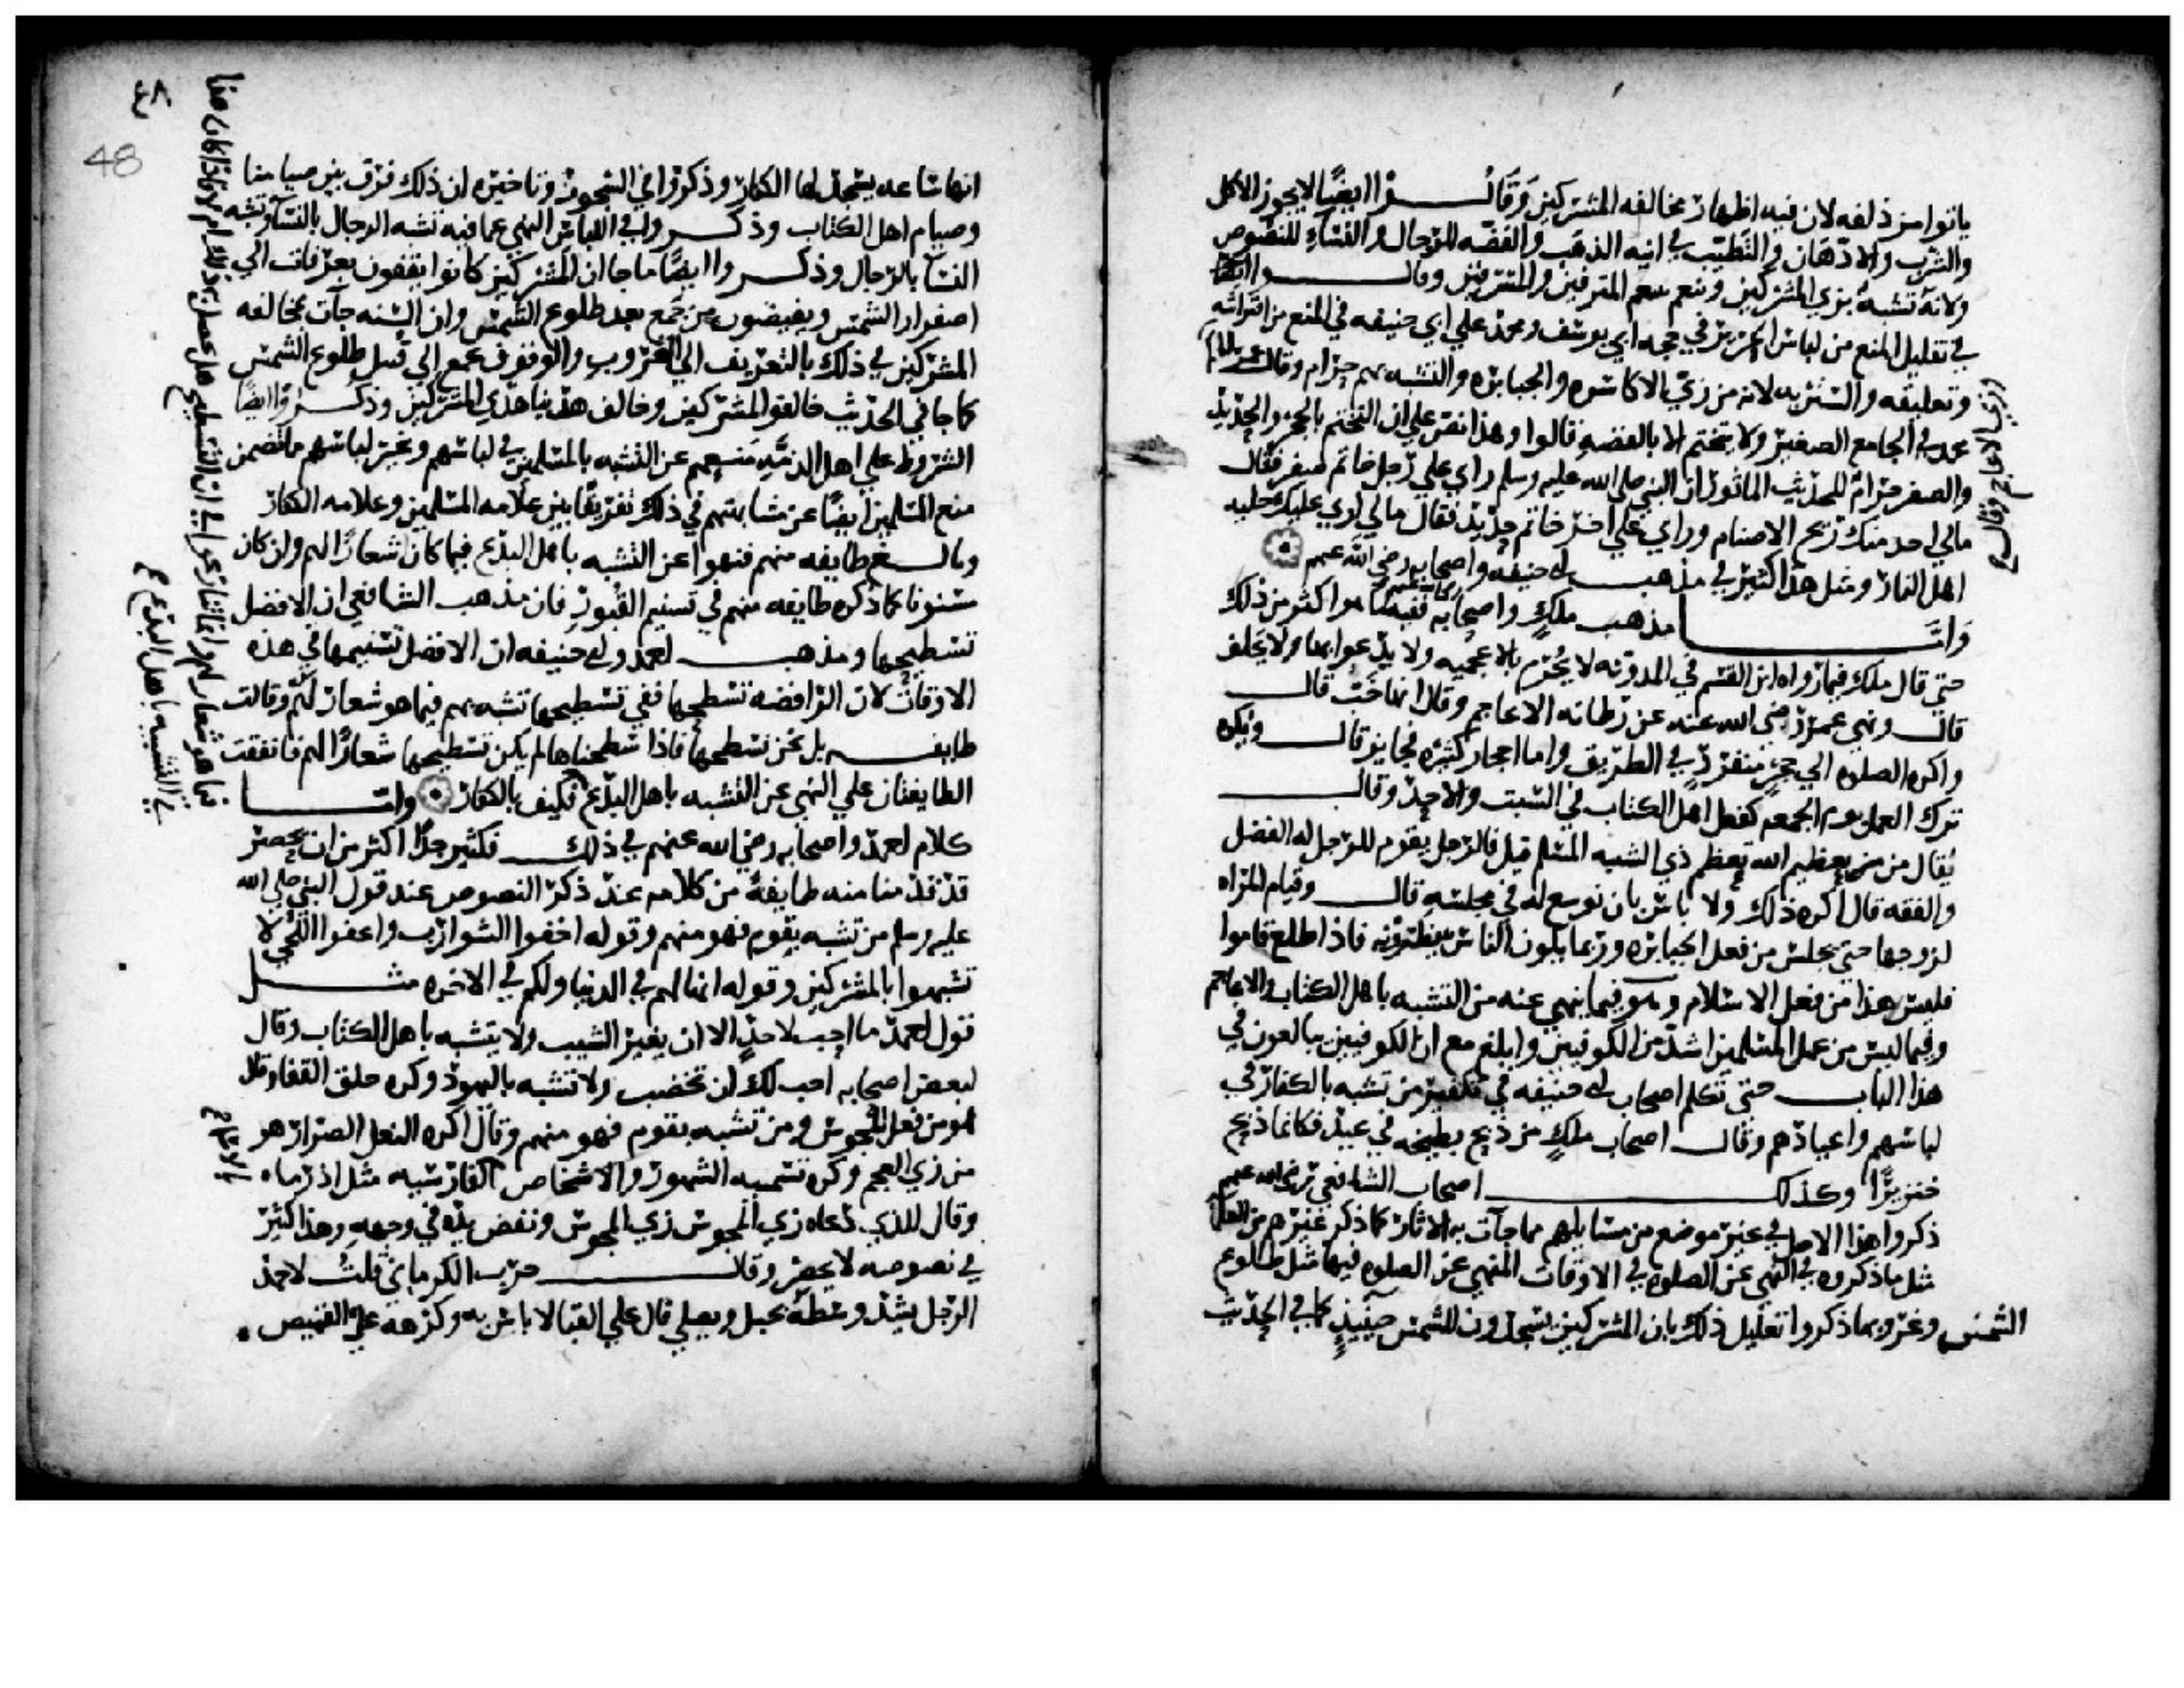 ياتوا من ذلفه لان فيه اظهار مخالفه المشركين وقالــــوا ايضًا لا يجوز الاكل
والشرب والادهان والتطيب في انيه الذهب والفضه للرجال والنساء للنصوص
ولانه تشبه بزي المشركين وتنعم بتنعم المترفين والمسرفين وقالـــوا ايضا
في تعليل المنع من لباس الحرير في حجه ابي يوسف ومحمد علي ابي حنيفه في المنع من افتراشه
وتعليقه والستر به لانه من زي الاكاسره والجبابره والتشبه بهم حرام وقال
محمد في الجامع الصغير ولا يتختم الا بالفضه قالوا وهذا نص علي ان التختم بالحجر والحديد
والصفر حرام للحديث الماثور ان النبي صلي الله عليه وسلم راي علي رجل خاتم صفر فقال
مالي اجد منك ريح الاصنام وراي علي اخر خاتم حديد فقال مالي اري عليك حليه
اهل النار ومثل هذا كثير في مذهب ابي حنيفه واصحابه رضي الله عنهم
وامـــا مذهب ملكٍ واصحابه ففيه ما هو اكثر من ذلك
حتي قال ملك فيما رواه ابن القسم في المدونه لا يُحرم بالاعجميه ولا يدعوا بها ولا يحلف
قال ونهي عمر رضي الله عنه عن رطانه الاعاجم وقال انها خب قال
واكره الصلوه الي حجر منفرد في الطريق واما احجار كثيره فجايز قال ويكره
ترك العمل يوم الجمعه كفعل اهل الكتاب في السبت والاحد وقال
يقال من تعظيم الله تعظيم ذي الشيبه المسلم قيل فالرجل يقوم للرجل له الفضل
والفقه قال اكره ذلك ولا باس بان توسع له في مجلسه قال وقيام المراه
لزوجها حتي يجلس من فعل الجبابره وربما يكون الناس ينتظرونه فاذا طلع قاموا
فليس هذا من فعل الاسلام وهو فيما ينهي عنه من التشبه باهل الكتاب والاعاجم
وفيما ليس من عمل المسلمين اشد من الكوفيين وابلغ مع ان الكوفيين يبالغون في
هذا الباب حتي تكلم اصحاب ابي حنيفه في تكفير من تشبه بالكفار في
لباسهم واعيادهم وقال اصحاب ملكٍ من ذبح بطيخه في عيد فكانما ذبح
خنزيرًا وكذلك اصحاب الشافعي رضي الله عنهم
ذكروا هذا الاصل في غير موضع من مسايلهم مما جآت به الاثار كما ذكر غيرهم من العلما
مثل ما ذكروه في النهي عن الصلوه في الاوقات المنهي عن الصلوه فيها مثل طلوع
الشمس وغروبها ذكروا تعليل ذلك بان المشركين يسجدون للشمس حينيذٍ كما في الحديث
٤٨
48
انها ساعه يسجد لها الكفار وذكروا في السحور وتاخيره ان ذلك فرق بين صيامنا
وصيام اهل الكتاب وذكــروا في اللباس النهي عما فيه تشبه الرجال بالنسآ وتشبه
النسآ بالرجال وذكــروا ايضًا ما جا ان المشركين كانوا يقفون بعرفات الي
اصفرار الشمس ويفيضون من جَمع بعد طلوع الشمس وان السنه جآت بمخالفه
المشركين في ذلك بالتعريف الي الغروب والوقوف بجمع الي قبيل طلوع الشمس
كما جا في الحديث خالفوا المشركين وخالف هدينا هدي المشركين وذكــروا ايضًا
الشروط علي اهل الذمه منعهم عن التشبه بالمسلمين في لباسهم وغير لباسهم مما تضمن
منع المسلمين ايضًا عن مشابهتهم في ذلك تفريقًا بين علامه المسلمين وعلامه الكفار
وبالــغ طايفه منهم فنهوا عن التشبه باهل البدع فيما كان شعارًا لهم وان كان
مسنونا كما ذكره طايفه منهم في تسنيم القبور فان مذهب الشافعي ان الافضل
تسطيحها ومذهب احمد وابي حنيفه ان الافضل تسنيمها في هذه
الاوقات لان الرافضه تسطحها ففي تسطيحها تشبه بهم فيما هو شعار لهم وقالت
طايفــه بل نحن نسطحها فاذا سطحناها لم يكن تسطيحها شعارًا لهم فاتفقت
الطايفتان علي النهي عن التشبه باهل البدع فكيف بالكفار وامــا
كلام احمد واصحابه رضي الله عنهم في ذلك فكثير جدًّا اكثر من ان يحصر
قد قدمنا منه طايفةً من كلامه عند ذكر النصوص عند قول النبي صلي الله
عليه وسلم من تشبه بقوم فهو منهم وقوله احفوا الشوارب واعفوا اللحي لا
تشبهوا بالمشركين وقوله انما لهم في الدنيا ولكم في الاخره مثـــل
قول احمد ما احب لاحدٍ الا ان يغير الشيب ولا يتشبه باهل الكتاب وقال
لبعض اصحابه احب لك ان تخضب ولا تشبه باليهود وكره حلق القفا وقال
هو من فعل المجوس ومن تشبه بقوم فهو منهم وقال اكره النعل الصرار هو
من زي العجم وكره تسميه الشهور والاشخاص الفارسيه مثل اذرماه
وقال للذي دعاه زي المجوس زي المجوس ونفض يده في وجهه وهذا كثير
في نصوصه لا يحصر وقال حرب الكرماني قلت لاحمد
الرجل يشد وسطه بحبل ويصلي قال علي القبا لا باس به وكرهه علي القميص